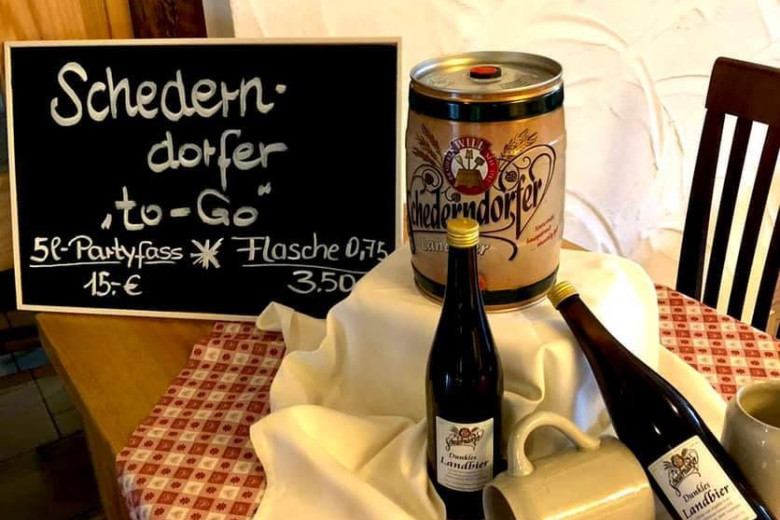 Schedern-
dorfer
„to-Go“
5l-Partyfass * Flasche 0,75
15.-€ 3.50
WILL
Schederndorfer
Landbier
Dunkles
Landbier
Dunkles
Landbier